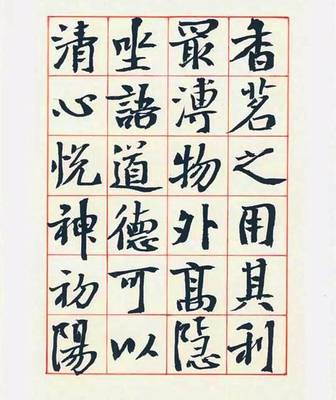 香茗之用其利
最溥物外高隐
坐語道德可以
清心悦神初陽